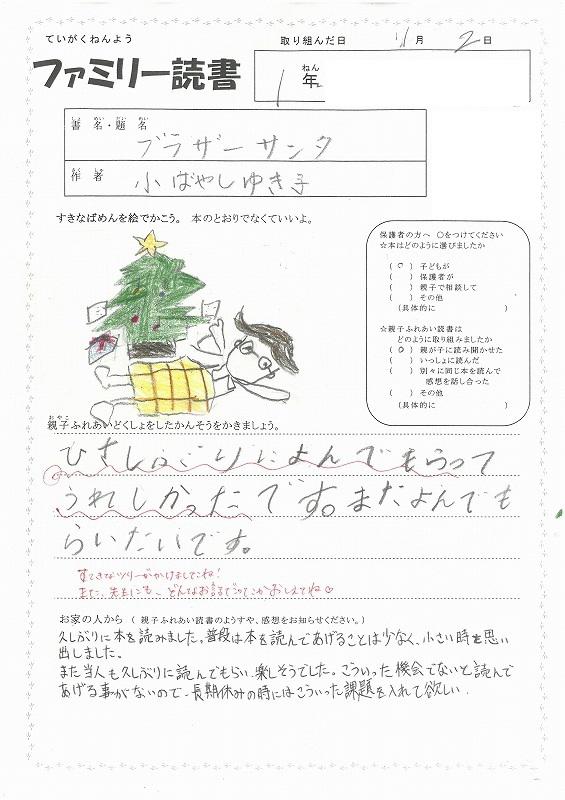 ていがくねんよう
取り組んだ日 11月 2日
ファミリー読書
1年
ねん
書名・題名
しょ めい だい めい
ブラザーサンタ
作者
さく しゃ
小ばやしゆき子
すきなばめんを絵でかこう。 本のとおりでなくていいよ。
保護者の方へ ○をつけてください
☆本はどのように選びましたか
( ○ ) 子どもが
( ) 保護者が
( ) 親子で相談して
( ) その他
(具体的に )
☆親子ふれあい読書は
どのように取り組みましたか
( ○ ) 親が子に読み聞かせた
( ) いっしょに読んだ
( ) 別々に同じ本を読んで
感想を話し合った
( ) その他
(具体的に )
おやこ
親子ふれあいどくしょをしたかんそうをかきましょう。
ひさしぶりによんでもらって
うれしかったです。またよんでも
らいたいです。
すてきなツリーがかけましたね!
また、先生にも、どんなお話だったかおしえてね♡
お家の人から ( 親子ふれあい読書のようすや、感想をお知らせください。)
久しぶりに本を読みました。普段は本を読んであげることは少なく、小さい時を思い
出しました。
また当人も久しぶりに読んでもらい楽しそうでした。こういった機会でないと読んで
あげる事がないので、長期休みの時にはこういった課題を入れて欲しい。